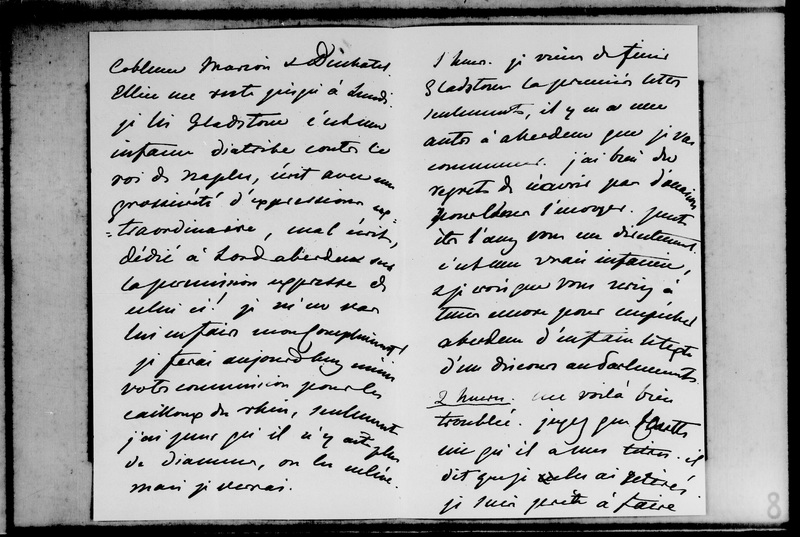 Coblence Marion & Duchatel.
Ellice me reste jusqu'à Lundi.
j'ai lu Gladstone c'est une
infame diatribe contre le
roi de Naples, écrit avec une
grossièreté d'expressions ex-
-traordinaire, mal écrit,
dédié à Lord aberdeen sur
la permission expresse de
celui ci! je m'en vais
lui en faire mon Compliment!
je ferai aujourd'huy même
votre commission pour les
cailloux du rhin, seulement
j'ai peur qu'il n'y ait plus
de diamens, on les mêlera.
mais je verrai.
1 heure. je viens de finir
Gladstone la première lettre
seulement, il y en a une
autre à aberdeen que je vais
commencer. j'ai bien du
regrets de n'avoir pas d'occasion
pour l'envoyer. peut
être l'avez vous eu directement.
c'est une vraie infamie,
& je vois que vous serez à
tems encore pour empêcher
aberdeen d'en faire le texte
d'un discours au Parlement.
2 heures. me voilà bien
troublée. jugez que
qu'il a mes lettres. il
dit que je les ai
je suis prête à faire